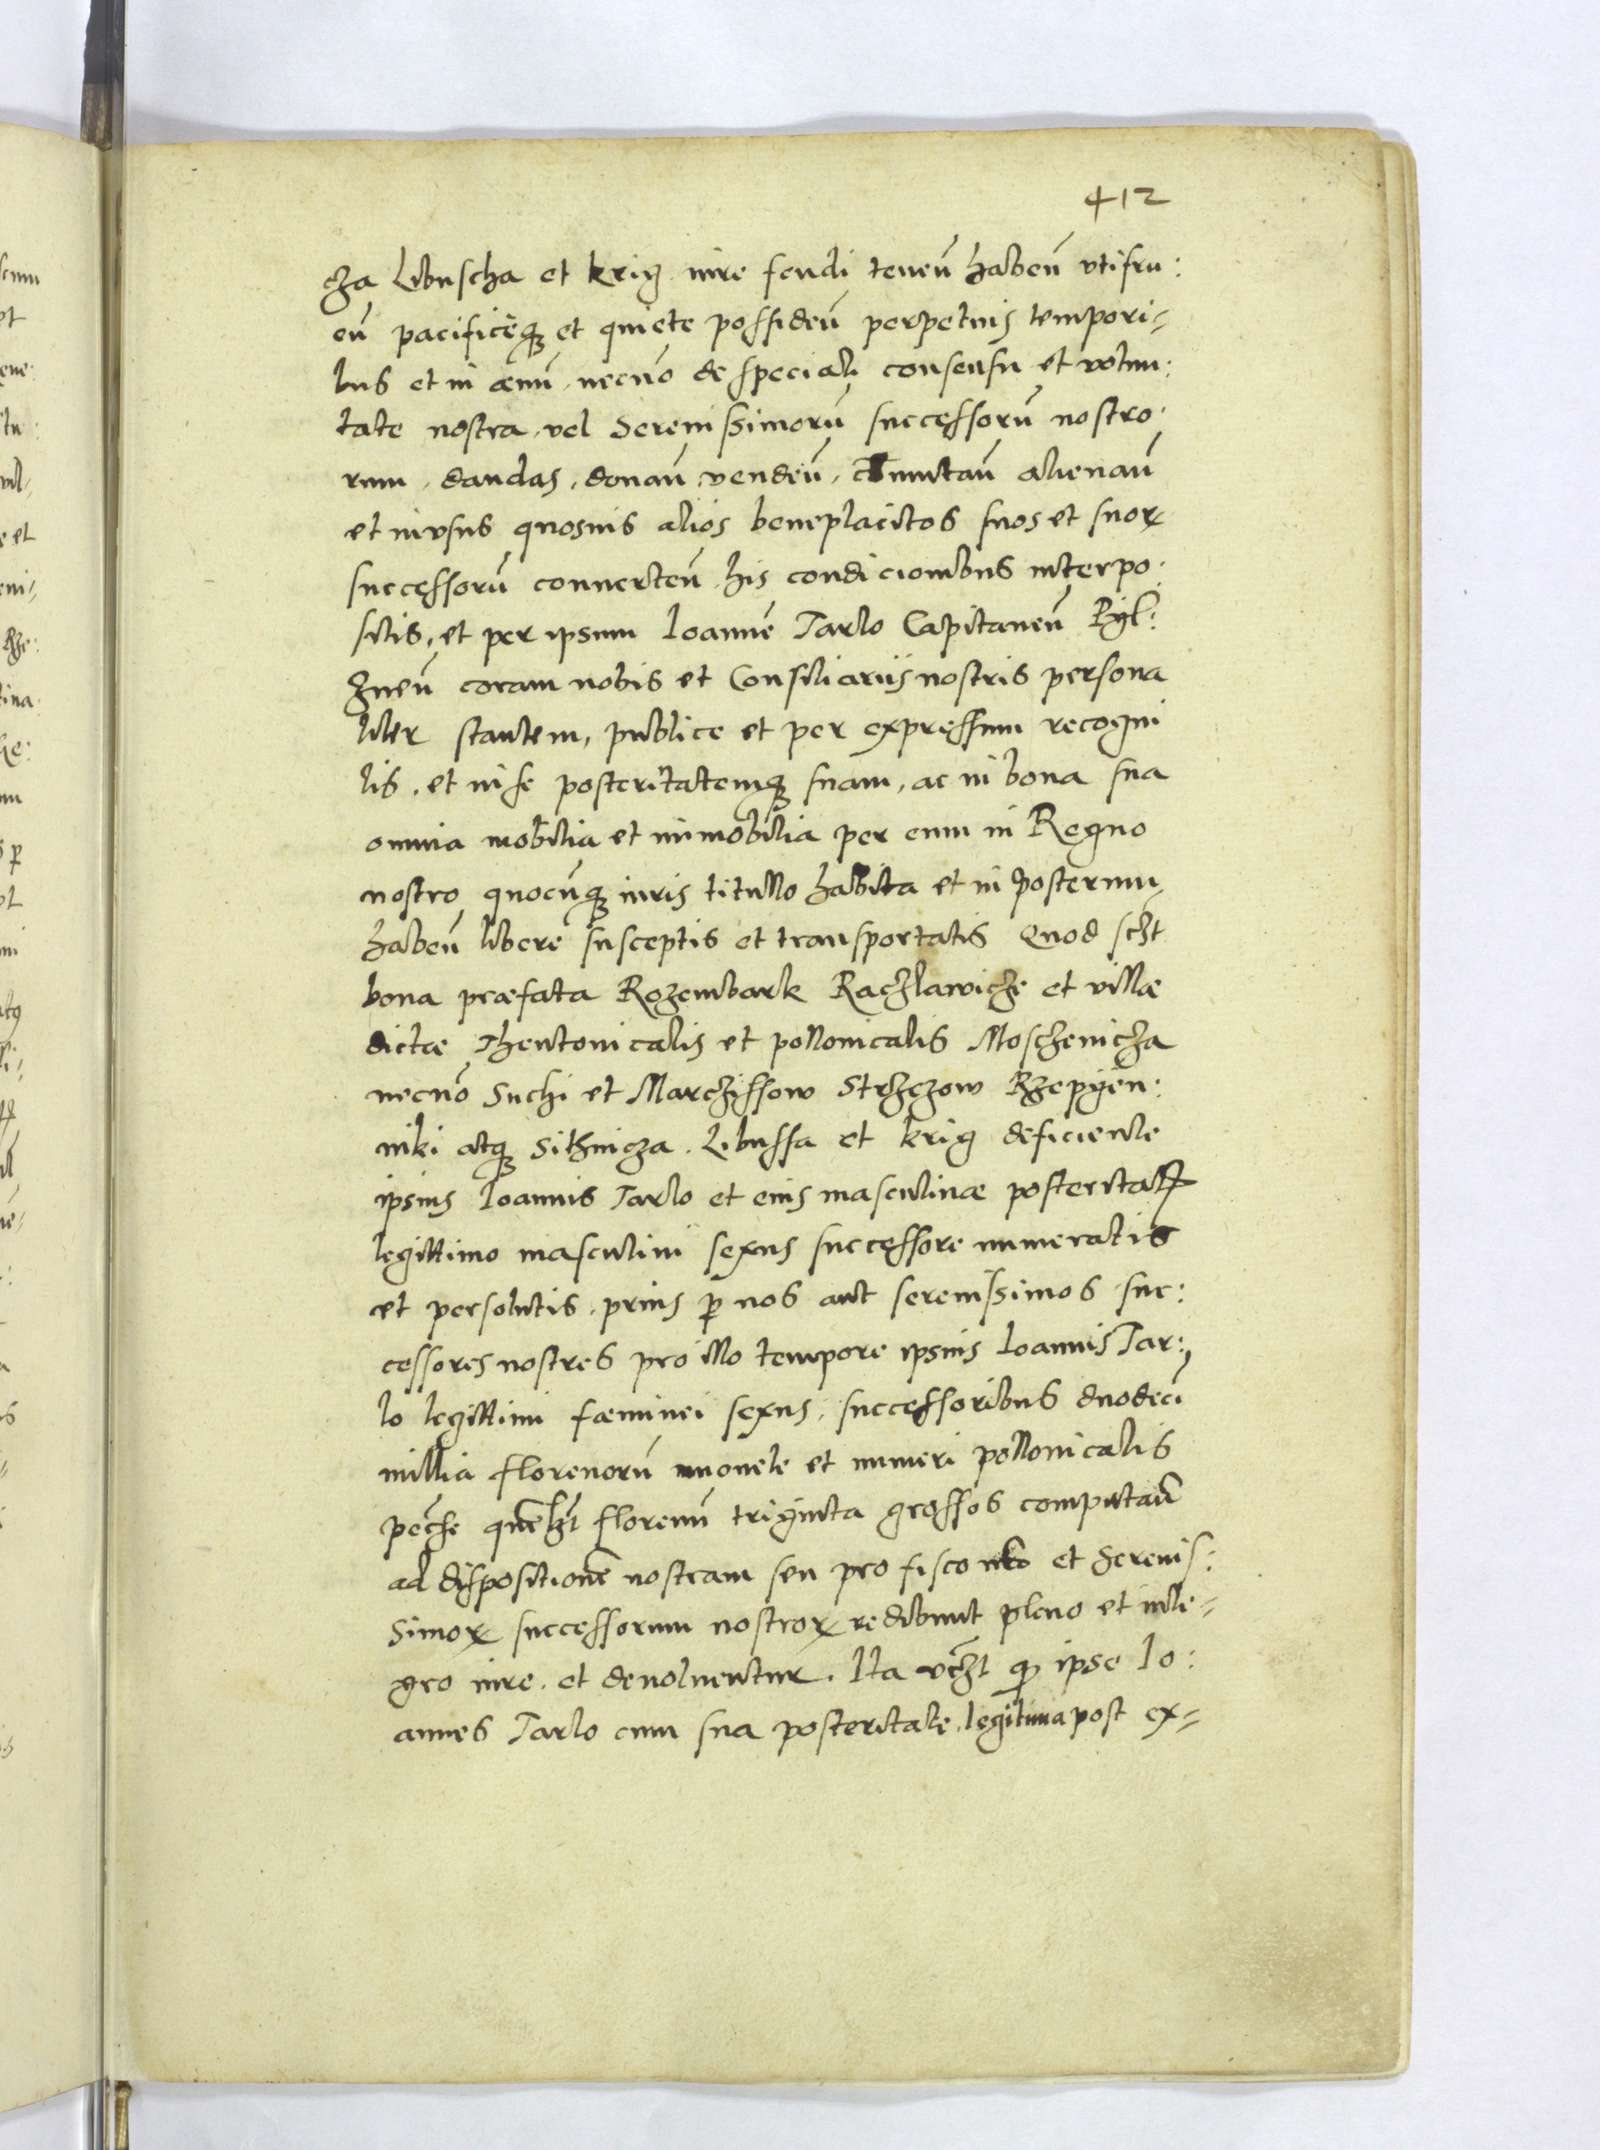 412
cza Libuscha et krig iure feudi teneñ habeñ vtifru:
eñ pacificèq3 et quiete possideñ perpetuis tempori=
bus et in æuũ, necnõ de speciali consensu et volun:
tate nostra, vel Serenissimorũ successorũ nostro:
rum, dandas, donañ vendeñ, cõmutañ alienañ
et in vsus quosuis alios beneplacitos suos et suoꝝ
successorũ conuerteñ his condicionibus interpo:
sitis, et per ipsum Ioannẽ Tarlo Capitaneũ Pyl:
zneñ coram nobis et Consiliariis nostris persona
liter stantem, publice et per expressum recogni
tis, et in se posteritatemq3 suam, ac in bona sua
omnia mobilia et immobilia per eum in Regno
nostro quocũq3 iuris titullo habita et in posterum
habeñ libere susceptis et transportatis Quod sczt
bona præfata Rozembark Raczlawicze et villæ
dictæ Theutonicalis et pollonicalis Moschenicza
necnõ Suchi et Marczissow Strzezow Rzepyen:
niki atq3 Sithnicza, Libussa et krig deficiente
ipsius Ioannis Tarlo et eius masculinæ posteritatis
legittimo masculini sexus successore numeratis
et persolutis, prius ꝑ nos aut serenissimos suc:
cessores nostros pro illo tempore ipsius Ioannis Tar:
lo legittimi fæminei sexus, successoribus duodeci
millia florenorũ monete et numeri pollonicalis
pecse quẽlzt florenũ triginta grossos computañ
ad dispositionẽ nostram seu pro fisco nr̃o et Serenis:
simoꝝ successorum nostroꝝ redibunt pleno et inte=
gro iure, et deuoluentur, Ita vczt qꝫ ipse Io:
annes Tarlo cum sua posteritate, legitima post ex=